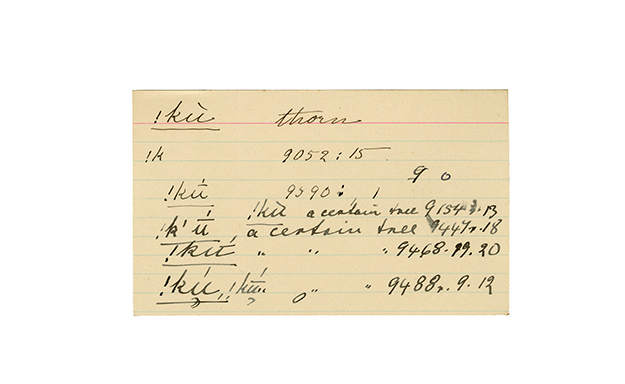 !kù thorn
!k 9052:15
9 0
!kú 9590: 1
!kù a certain tree 9154 . 13
!k'ú, a certain tree 9447. 18
!kú " " " 9468. 19. 20
!kú, !kú " " 9488. 9. 12